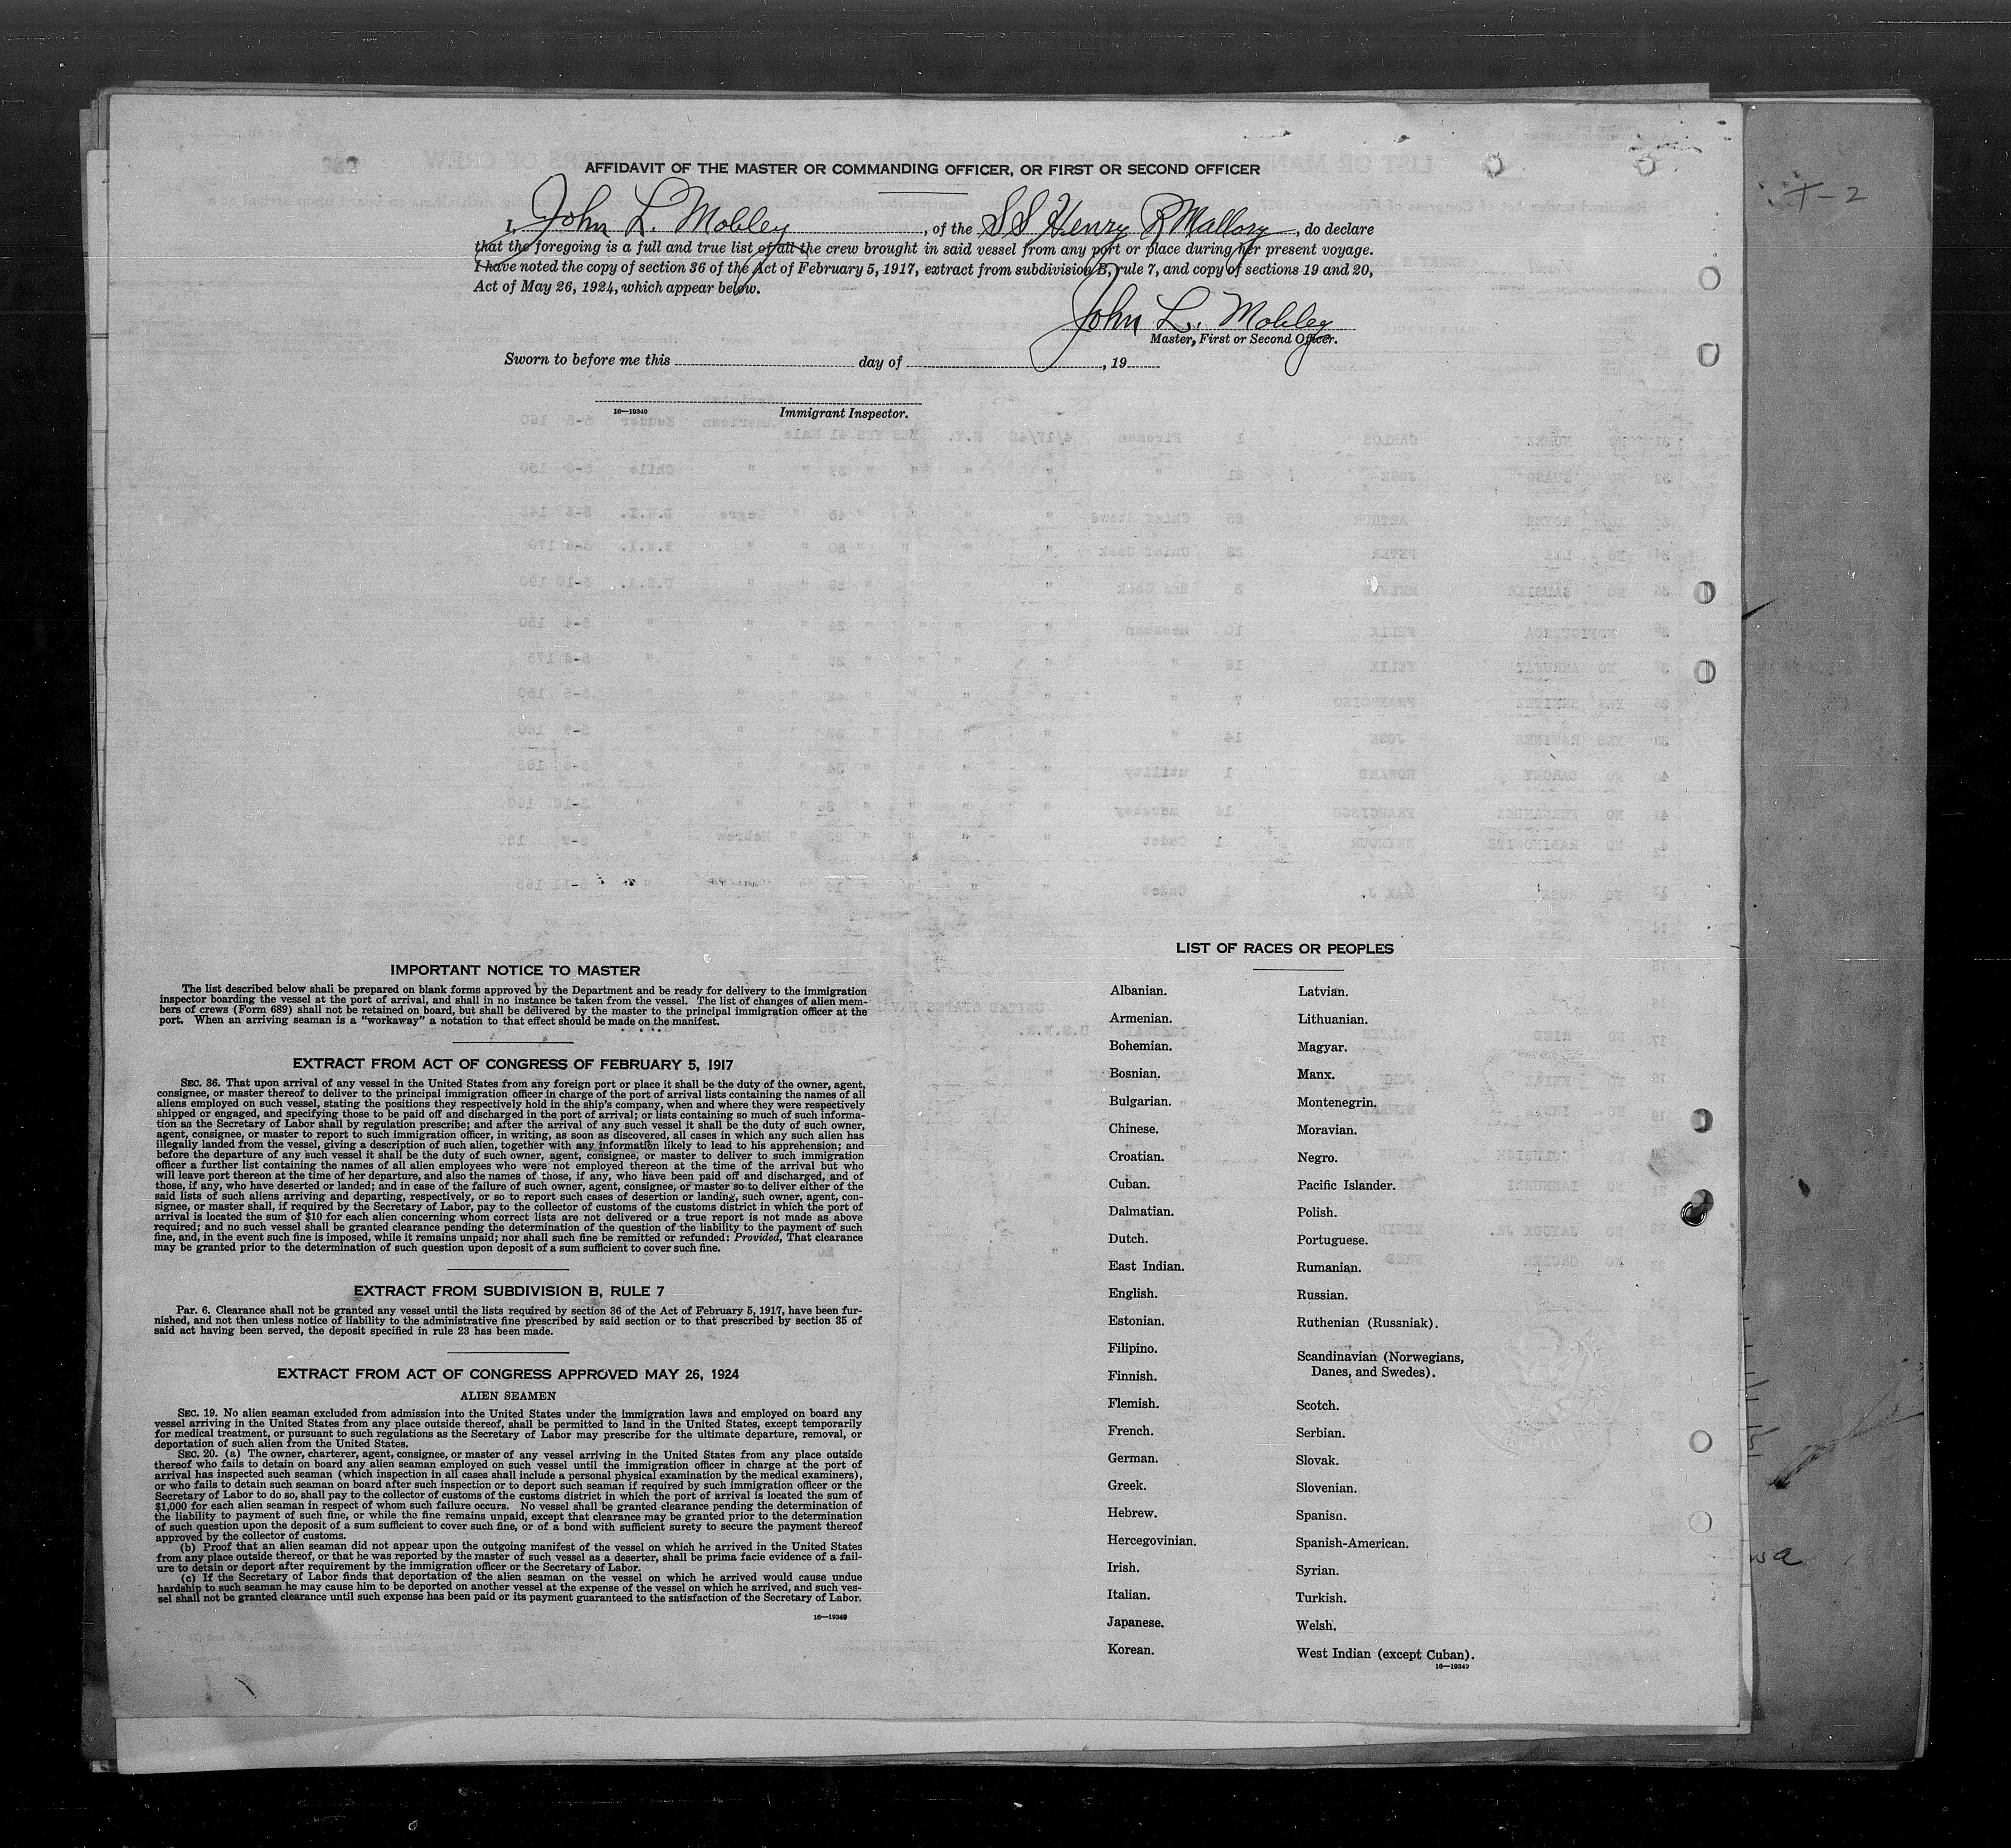 AFFIDAVIT OF THE MASTER OR COMMANDING OFFICER, OR FIRST OR SECOND OFFICER
I, John L. Mobley, of the SS Henry R Mallory, do declare
that the foregoing is a full and true list of all the crew brought in said vessel from any port or place during her present voyage.
I have noted the copy of section 36 of the Act of February 5, 1917, extract from subdivision B, rule 7, and copy of sections 19 and 20,
Act of May 26, 1924, which appear below.
John L. Mobley
Master, First or Second Officer.
Sworn to before me this day of , 19
16—19349 Immigrant Inspector.
T-2
IMPORTANT NOTICE TO MASTER
The list described below shall be prepared on blank forms approved by the Department and be ready for delivery to the immigration
inspector boarding the vessel at the port of arrival, and shall in no instance be taken from the vessel. The list of changes of alien mem-
bers of crews (Form 689) shall not be retained on board, but shall be delivered by the master to the principal immigration officer at the
port. When an arriving seaman is a "workaway" a notation to that effect should be made on the manifest.
EXTRACT FROM ACT OF CONGRESS OF FEBRUARY 5, 1917
SEC. 36. That upon arrival of any vessel in the United States from any foreign port or place it shall be the duty of the owner, agent,
consignee, or master thereof to deliver to the principal immigration officer in charge of the port of arrival lists containing the names of all
aliens employed on such vessel, stating the positions they respectively hold in the ship's company, when and where they were respectively
shipped or engaged, and specifying those to be paid off and discharged in the port of arrival; or lists containing so much of such informa-
tion as the Secretary of Labor shall by regulation prescribe; and after the arrival of any such vessel it shall be the duty of such owner,
agent, consignee, or master to report to such immigration officer, in writing, as soon as discovered, all cases in which any such alien has
illegally landed from the vessel, giving a description of such alien, together with any information likely to lead to his apprehension; and
before the departure of any such vessel it shall be the duty of such owner, agent, consignee, or master to deliver to such immigration
officer a further list containing the names of all alien employees who were not employed thereon at the time of the arrival but who
will leave port thereon at the time of her departure, and also the names of those, if any, who have been paid off and discharged, and of
those, if any, who have deserted or landed; and in case of the failure of such owner, agent, consignee, or master so to deliver either of the
said lists of such aliens arriving and departing, respectively, or so to report such cases of desertion or landing, such owner, agent, con-
signee, or master shall, if required by the Secretary of Labor, pay to the collector of customs of the customs district in which the port of
arrival is located the sum of $10 for each alien concerning whom correct lists are not delivered or a true report is not made as above
required; and no such vessel shall be granted clearance pending the determination of the question of the liability to the payment of such
fine, and, in the event such fine is imposed, while it remains unpaid; nor shall such fine be remitted or refunded: Provided, That clearance
may be granted prior to the determination of such question upon deposit of a sum sufficient to cover such fine.
EXTRACT FROM SUBDIVISION B, RULE 7
Par. 6. Clearance shall not be granted any vessel until the lists required by section 36 of the Act of February 5, 1917, have been fur-
nished, and not then unless notice of liability to the administrative fine prescribed by said section or to that prescribed by section 35 of
said act having been served, the deposit specified in rule 23 has been made.
EXTRACT FROM ACT OF CONGRESS APPROVED MAY 26, 1924
ALIEN SEAMEN
SEC. 19. No alien seaman excluded from admission into the United States under the immigration laws and employed on board any
vessel arriving in the United States from any place outside thereof, shall be permitted to land in the United States, except temporarily
for medical treatment, or pursuant to such regulations as the Secretary of Labor may prescribe for the ultimate departure, removal, or
deportation of such alien from the United States.
SEC. 20. (a) The owner, charterer, agent, consignee, or master of any vessel arriving in the United States from any place outside
thereof who fails to detain on board any alien seaman employed on such vessel until the immigration officer in charge at the port of
arrival has inspected such seaman (which inspection in all cases shall include a personal physical examination by the medical examiners),
or who fails to detain such seaman on board after such inspection or to deport such seaman if required by such immigration officer or the
Secretary of Labor to do so, shall pay to the collector of customs of the customs district in which the port of arrival is located the sum of
$1,000 for each alien seaman in respect of whom such failure occurs. No vessel shall be granted clearance pending the determination of
the liability to payment of such fine, or while the fine remains unpaid, except that clearance may be granted prior to the determination
of such question upon the deposit of a sum sufficient to cover such fine, or of a bond with sufficient surety to secure the payment thereof
approved by the collector of customs.
(b) Proof that an alien seaman did not appear upon the outgoing manifest of the vessel on which he arrived in the United States
from any place outside thereof, or that he was reported by the master of such vessel as a deserter, shall be prima facie evidence of a fail-
ure to detain or deport after requirement by the immigration officer or the Secretary of Labor.
(c) If the Secretary of Labor finds that deportation of the alien seaman on the vessel on which he arrived would cause undue
hardship to such seaman he may cause him to be deported on another vessel at the expense of the vessel on which he arrived, and such ves-
sel shall not be granted clearance until such expense has been paid or its payment guaranteed to the satisfaction of the Secretary of Labor.
16—19349
LIST OF RACES OR PEOPLES
Albanian.
Armenian.
Bohemian.
Bosnian.
Bulgarian.
Chinese.
Croatian.
Cuban.
Dalmatian.
Dutch.
East Indian.
English.
Estonian.
Filipino.
Finnish.
Flemish.
French.
German.
Greek.
Hebrew.
Hercegovinian.
Irish.
Italian.
Japanese.
Korean.
Latvian.
Lithuanian.
Magyar.
Manx.
Montenegrin.
Moravian.
Negro.
Pacific Islander.
Polish.
Portuguese.
Rumanian.
Russian.
Ruthenian (Russniak).
Scandinavian (Norwegians,
Danes, and Swedes).
Scotch.
Serbian.
Slovak.
Slovenian.
Spanish.
Spanish-American.
Syrian.
Turkish.
Welsh.
West Indian (except Cuban).
16—19349